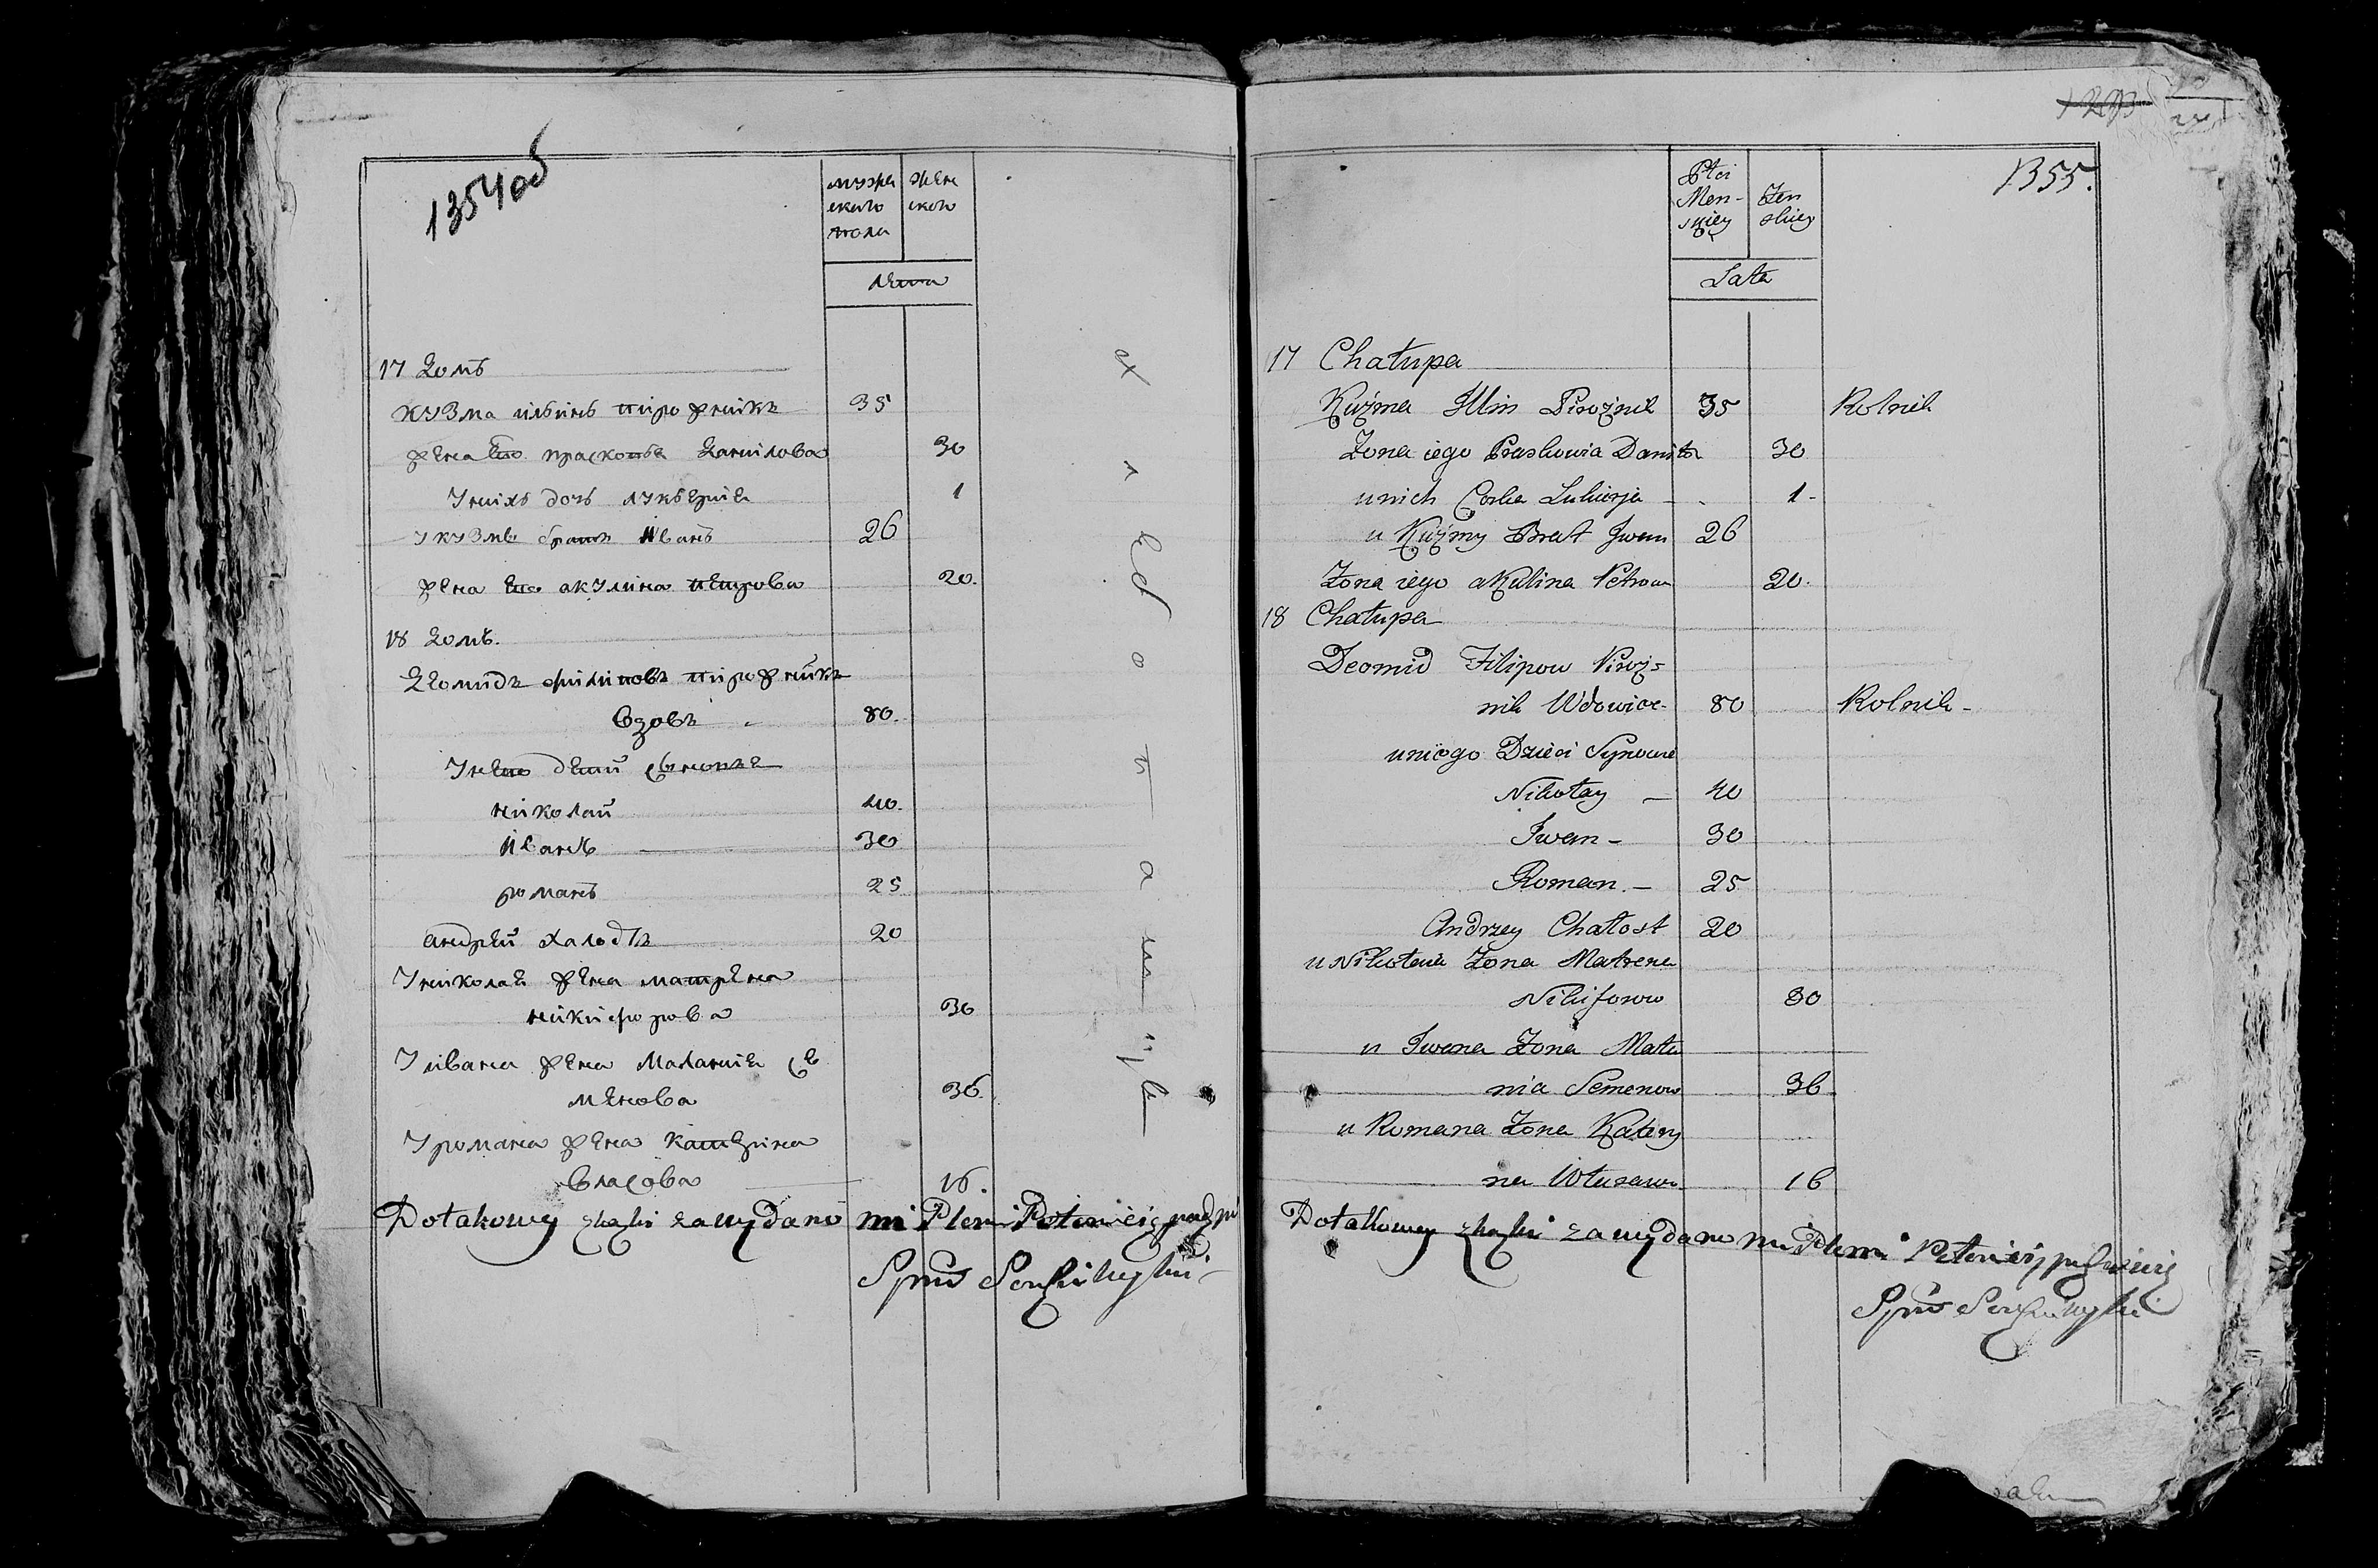 1354об
мужескаго пола
женскаго
лета
17 домъ
кузма ильинъ пирожникъ 35
жена ево прасковья данилова 30
у нихъ дочь лукерия 1
у кузмы братъ иванъ 26
жена ево акулина петрова 20.
18 домъ.
деомидъ филиповъ пирожникъ
вдовъ 80.
у нево дети сыновья
николай 40.
иванъ 30
романъ 25
андрей халостъ 20
у николая жена матрена
никифорова 30
у ивана жена малания се
менова 36.
у романа жена катерина
власова 16.
Dotakowey skaski zawydano mi Pleni Potencię
1355.
Płci Men-skiey
Żen skiey
Lata
17 Chałupa
Kuźma Ilin Pirożnik 35 Rolnik
Żona iego Praskowia Daniło 30
u nich Corka Lukierja - 1-
u Kuźmy Brat Jwan 26
Żona iego akulina Petrowa 20.
18 Chałupa
Deomid Filipow Piroż=
nik Wdowiec 80 Rolnik -
u niego Dzieci Synowie
Nikołay - 40
Iwan - 30
Roman. - 25
Andrzey Chałost 20
u Nikołaia Żona Matrena
Nikiforow 30
u Iwana Żona Mała
nia Semenow 36
u Romana Żona Katery
na Własawa 16
Dotakowey skaski zawydano mi Pleni Potencię